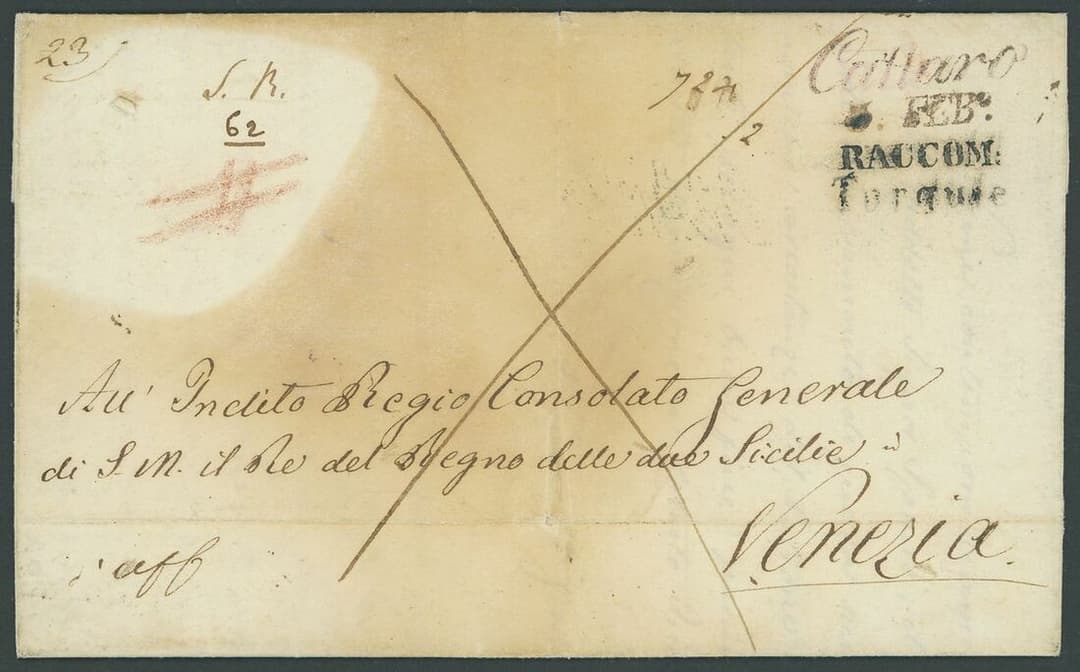 23
S. R.
62
2
Cattaro
FEBº.
RACCOM:
Turquie
All' Inclito Regio Consolato Generale
di S. M. il Re del Regno delle due Sicilie
Venezia.